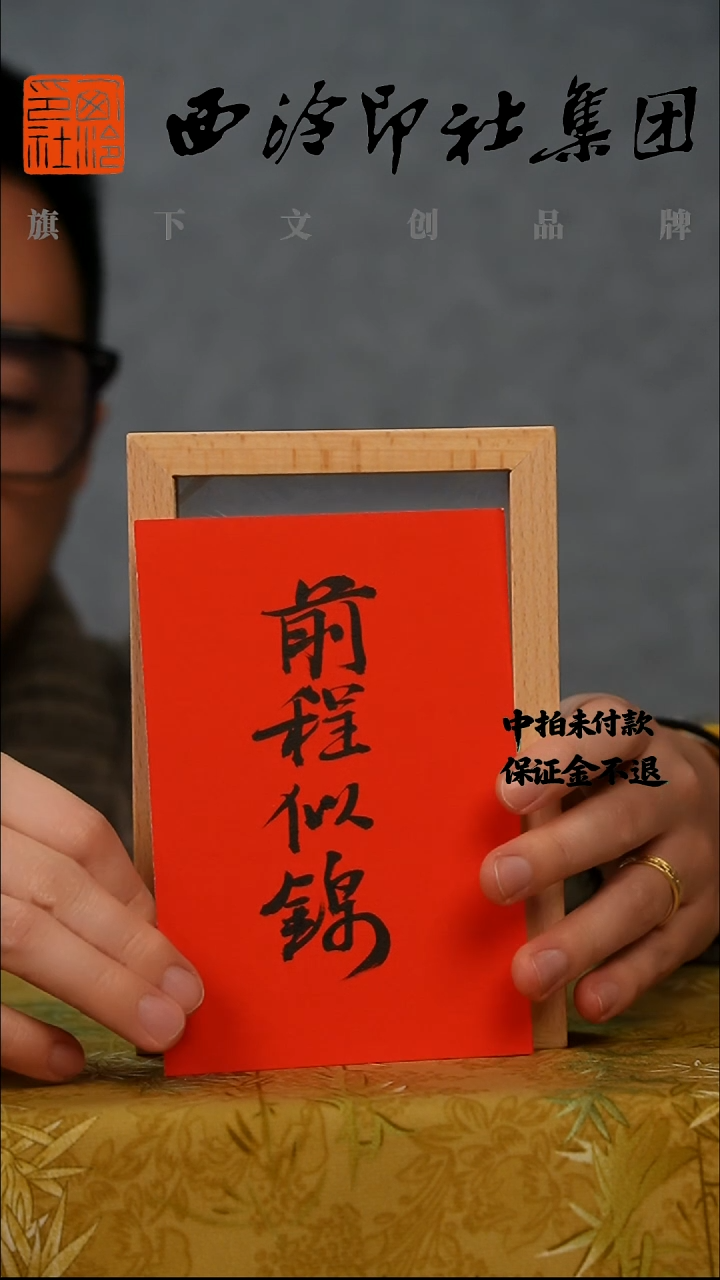 西泠印社
西泠印社集团
旗下文创品牌
前程似錦
中拍未付款
保证金不退